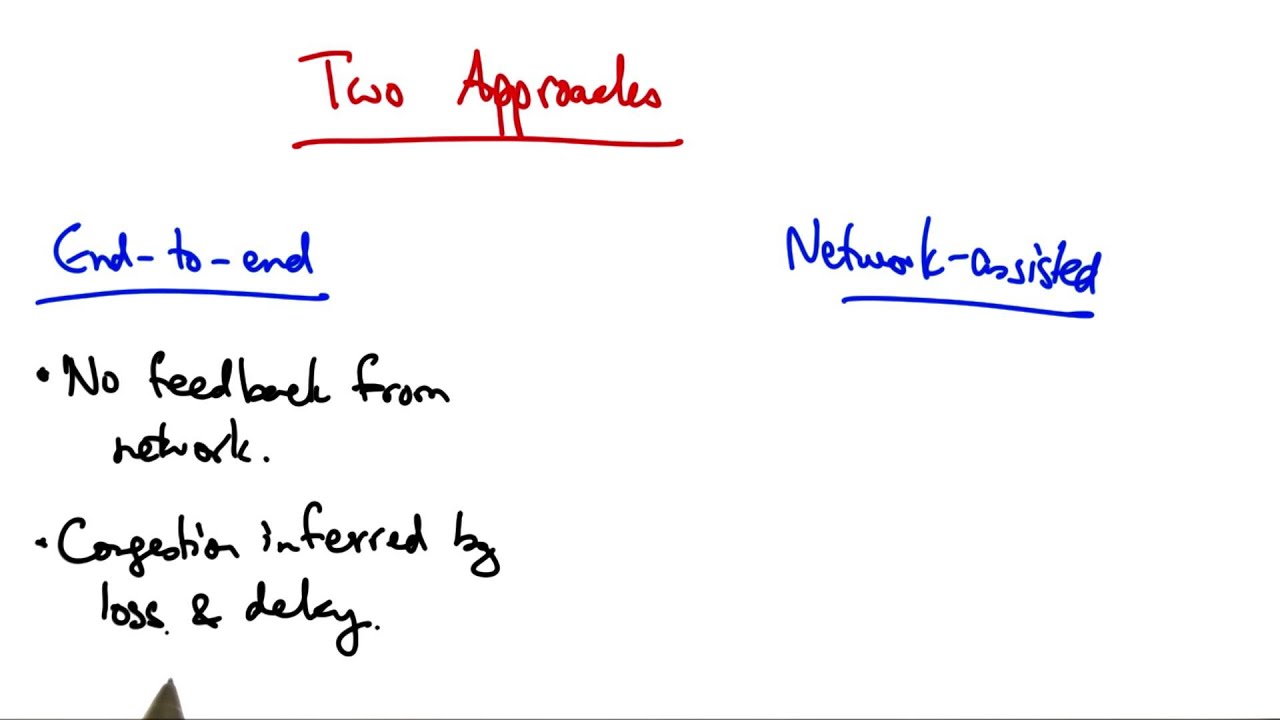 Two Approaches
End-to-end
Network-assisted
• No feedback from
network.
• Congestion inferred by
loss & delay.